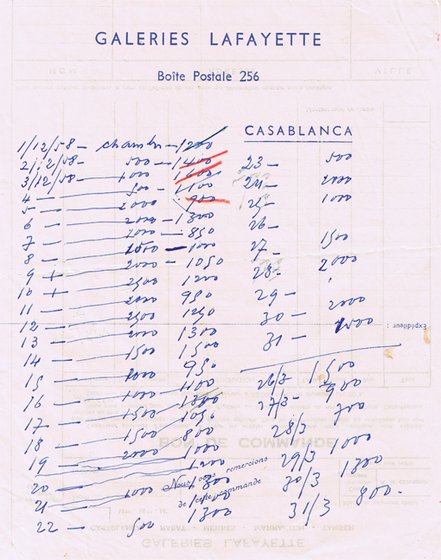 GALERIES LAFAYETTE
Boîte Postale 256
CASABLANCA
1/12/58 — chambre — 1200
2/12/58 — 500 — 1400
3/12/58 — 1000
4 — 500 — 1100
5 — 2000 — 900
6 — 2000 — 1300
7 — 2000 — 850
8 — 1500 — 1000
9 — 2000 — 1050
10 — 2500 1200
11 — 2000 950
12 — 2500 1250
13 — 2000 1300
14 — 1500 1500
15 — 1000 950
16 — 1000 1100
17 — 1500
18 — 1500 1050
19 — 2000 800
20 — 1000
21 — 1000
22 — 500 1300
23 — 500
24 — 2000
25 — 1000
26 —
27 1500
28 — 2000
29 —
30 — 2000
31 —
26/3 1500
27/3 — 900
28/3 700
29/3 1000
30/3 1300
31/3 800.
Expéditeur :
Nous vous remercions
de votre commande
BON DE COMMANDE
GALERIES LAFAYETTE